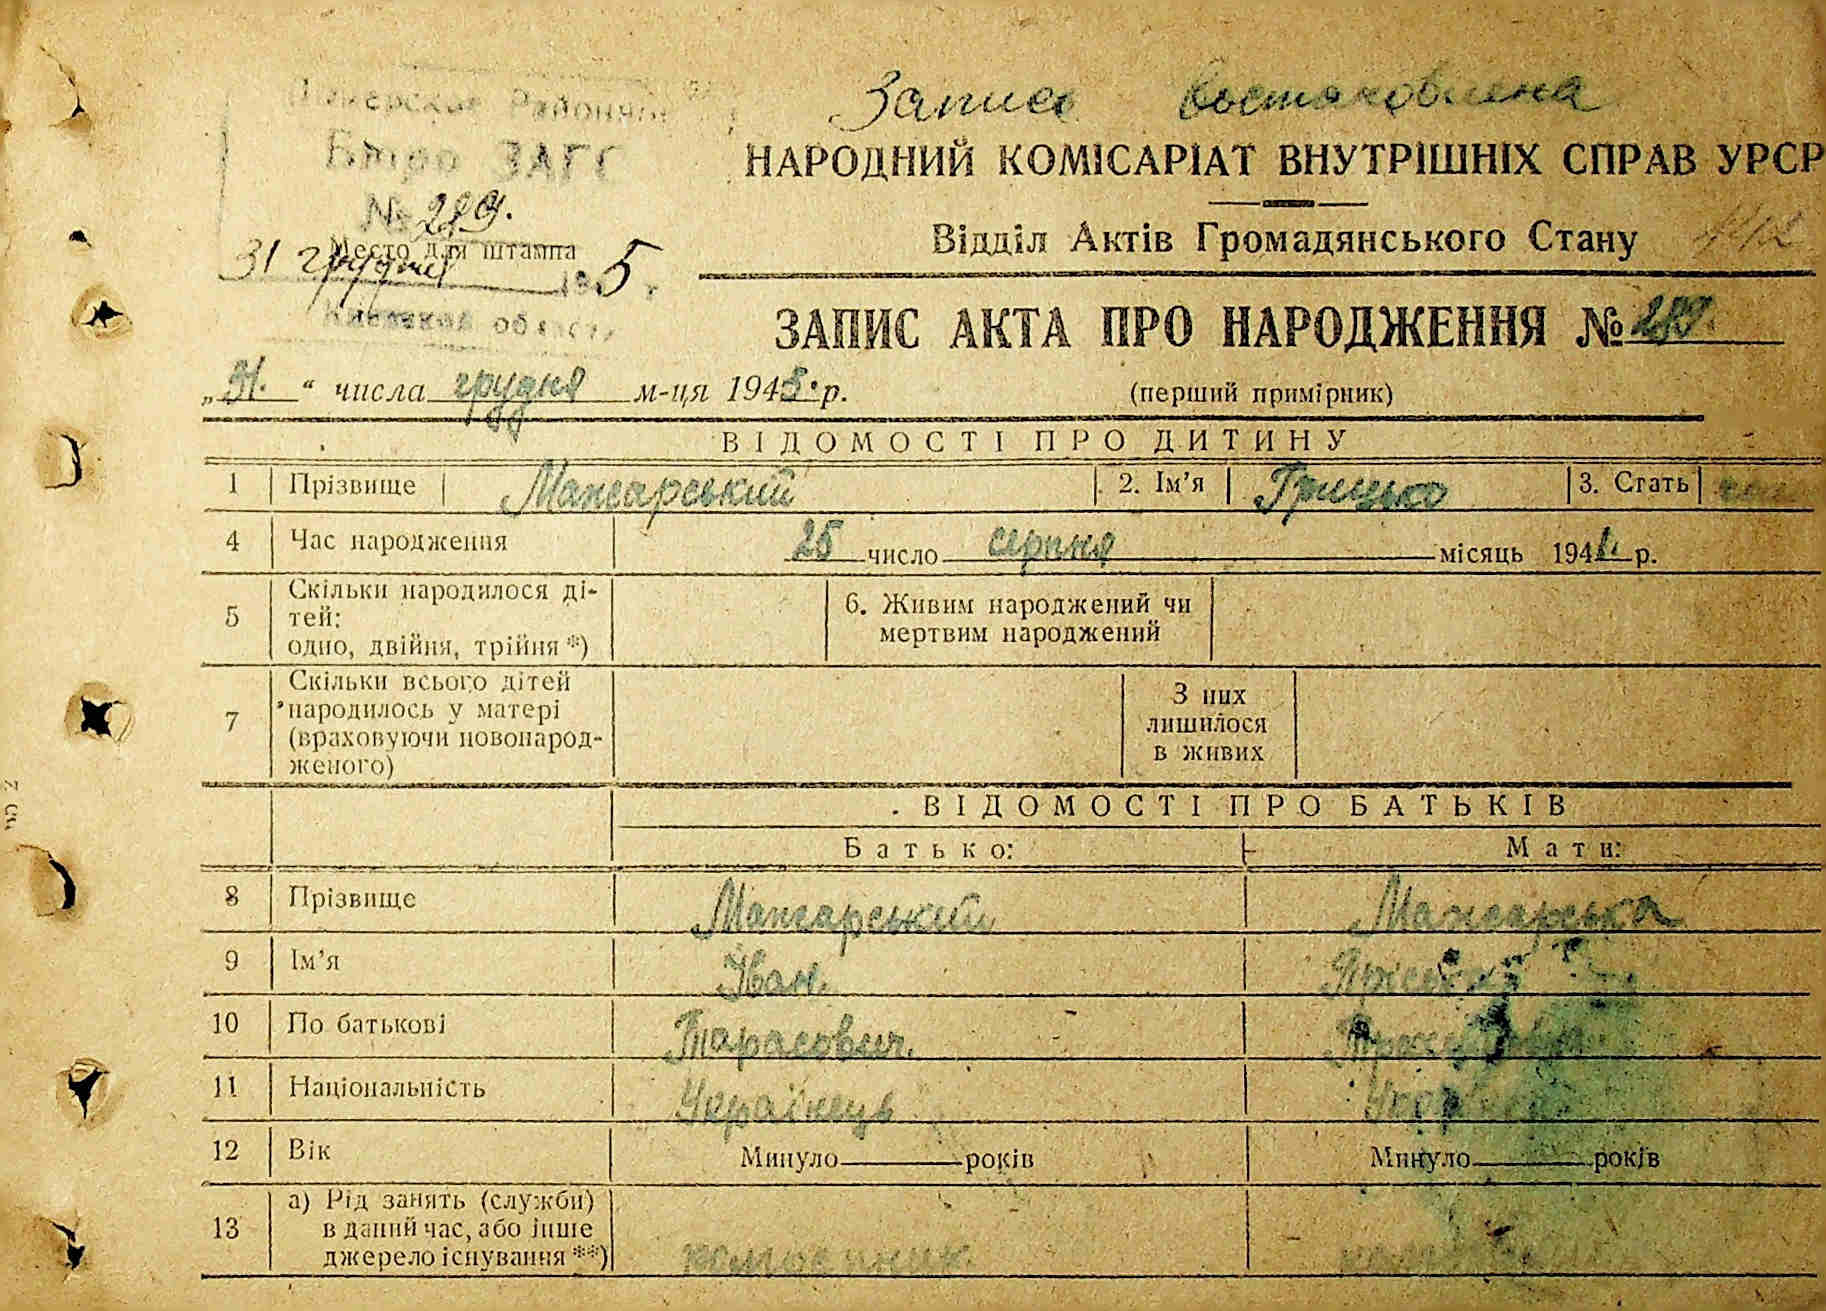 Запись востановлена
Районное
Бюро ЗАГС
№ 289.
Место для штампа
31 грудня 1945 г.
Киевской области
НАРОДНИЙ КОМІСАРІАТ ВНУТРІШНІХ СПРАВ УРСР
Відділ Актів Громадянського Стану
ЗАПИС АКТА ПРО НАРОДЖЕННЯ № 289.
„31.“ числа грудня м-ця 1945 р.
(перший примірник)
ВІДОМОСТІ ПРО ДИТИНУ
1 Прізвище Мажарський 2. Ім’я Грицько 3. Стать
4 Час народження 25 число серпня місяць 1941. р.
5 Скільки народилося ді-
тей:
одно, двійня, трійня *)
6. Живим народжений чи
мертвим народжений
7 Скільки всього дітей
народилось у матері
(враховуючи новонарод-
женого)
З них
лишилося
в живих
ВІДОМОСТІ ПРО БАТЬКІВ
Батько: Мати:
8 Прізвище Мажарський Мажарська
9 Ім’я Іван
10 По батькові Тарасович.
11 Національність Українець
12 Вік Минуло років Минуло років
13 а) Рід занять (служби)
в даний час, або інше
джерело існування **)
колгоспник